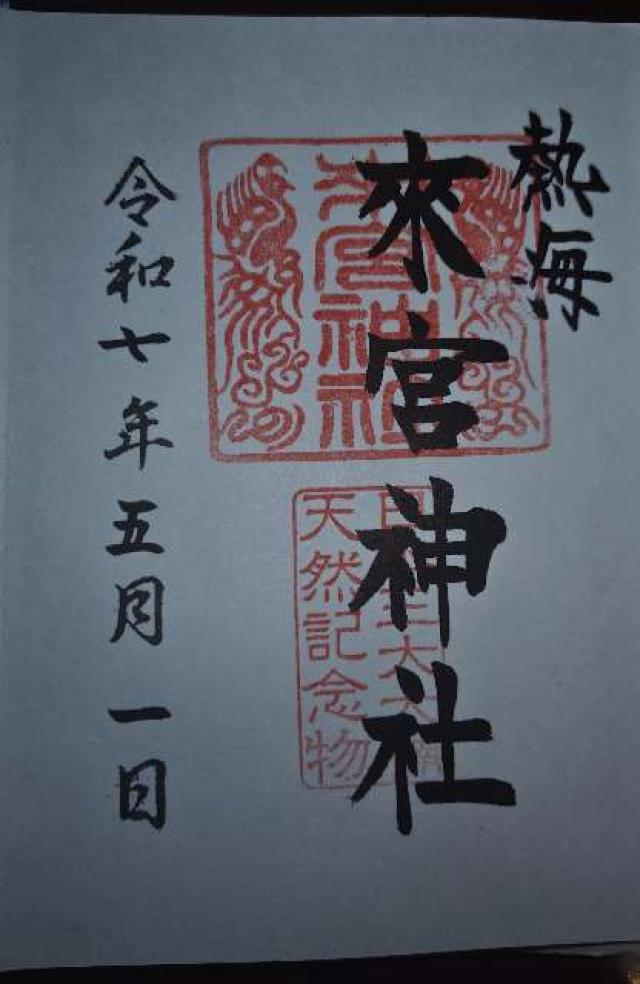 熱海
來宮神社
來宮神社
天然記念物
令和七年五月一日